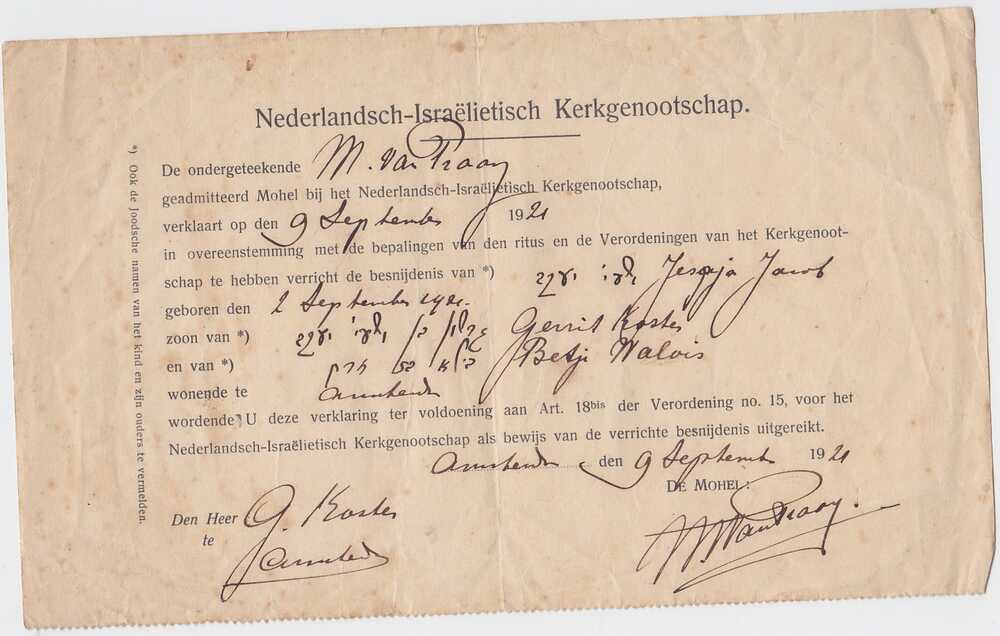 Nederlandsch-Israëlietisch Kerkgenootschap.
De ondergeteekende M. van Praag
geadmitteerd Mohel bij het Nederlandsch-Israëlietisch Kerkgenootschap,
verklaart op den 9 September 1921
in overeenstemming met de bepalingen van den ritus en de Verordeningen van het Kerkgenoot-
schap te hebben verricht de besnijdenis van *) Jesaja Jacob
geboren den 2 September 1921.
zoon van *) Gerrit Koster
en van *) Betje Walvis
wonende te Amsterdam
wordende U deze verklaring ter voldoening aan Art. 18bis der Verordening no. 15, voor het
Nederlandsch-Israëlietisch Kerkgenootschap als bewijs van de verrichte besnijdenis uitgereikt.
Amsterdam den 9 September 1921
DE MOHEL:
Den Heer G. Koster
te Amsterdam
M. van Praag.
*) Ook de Joodsche namen van het kind en zijn ouders te vermelden.